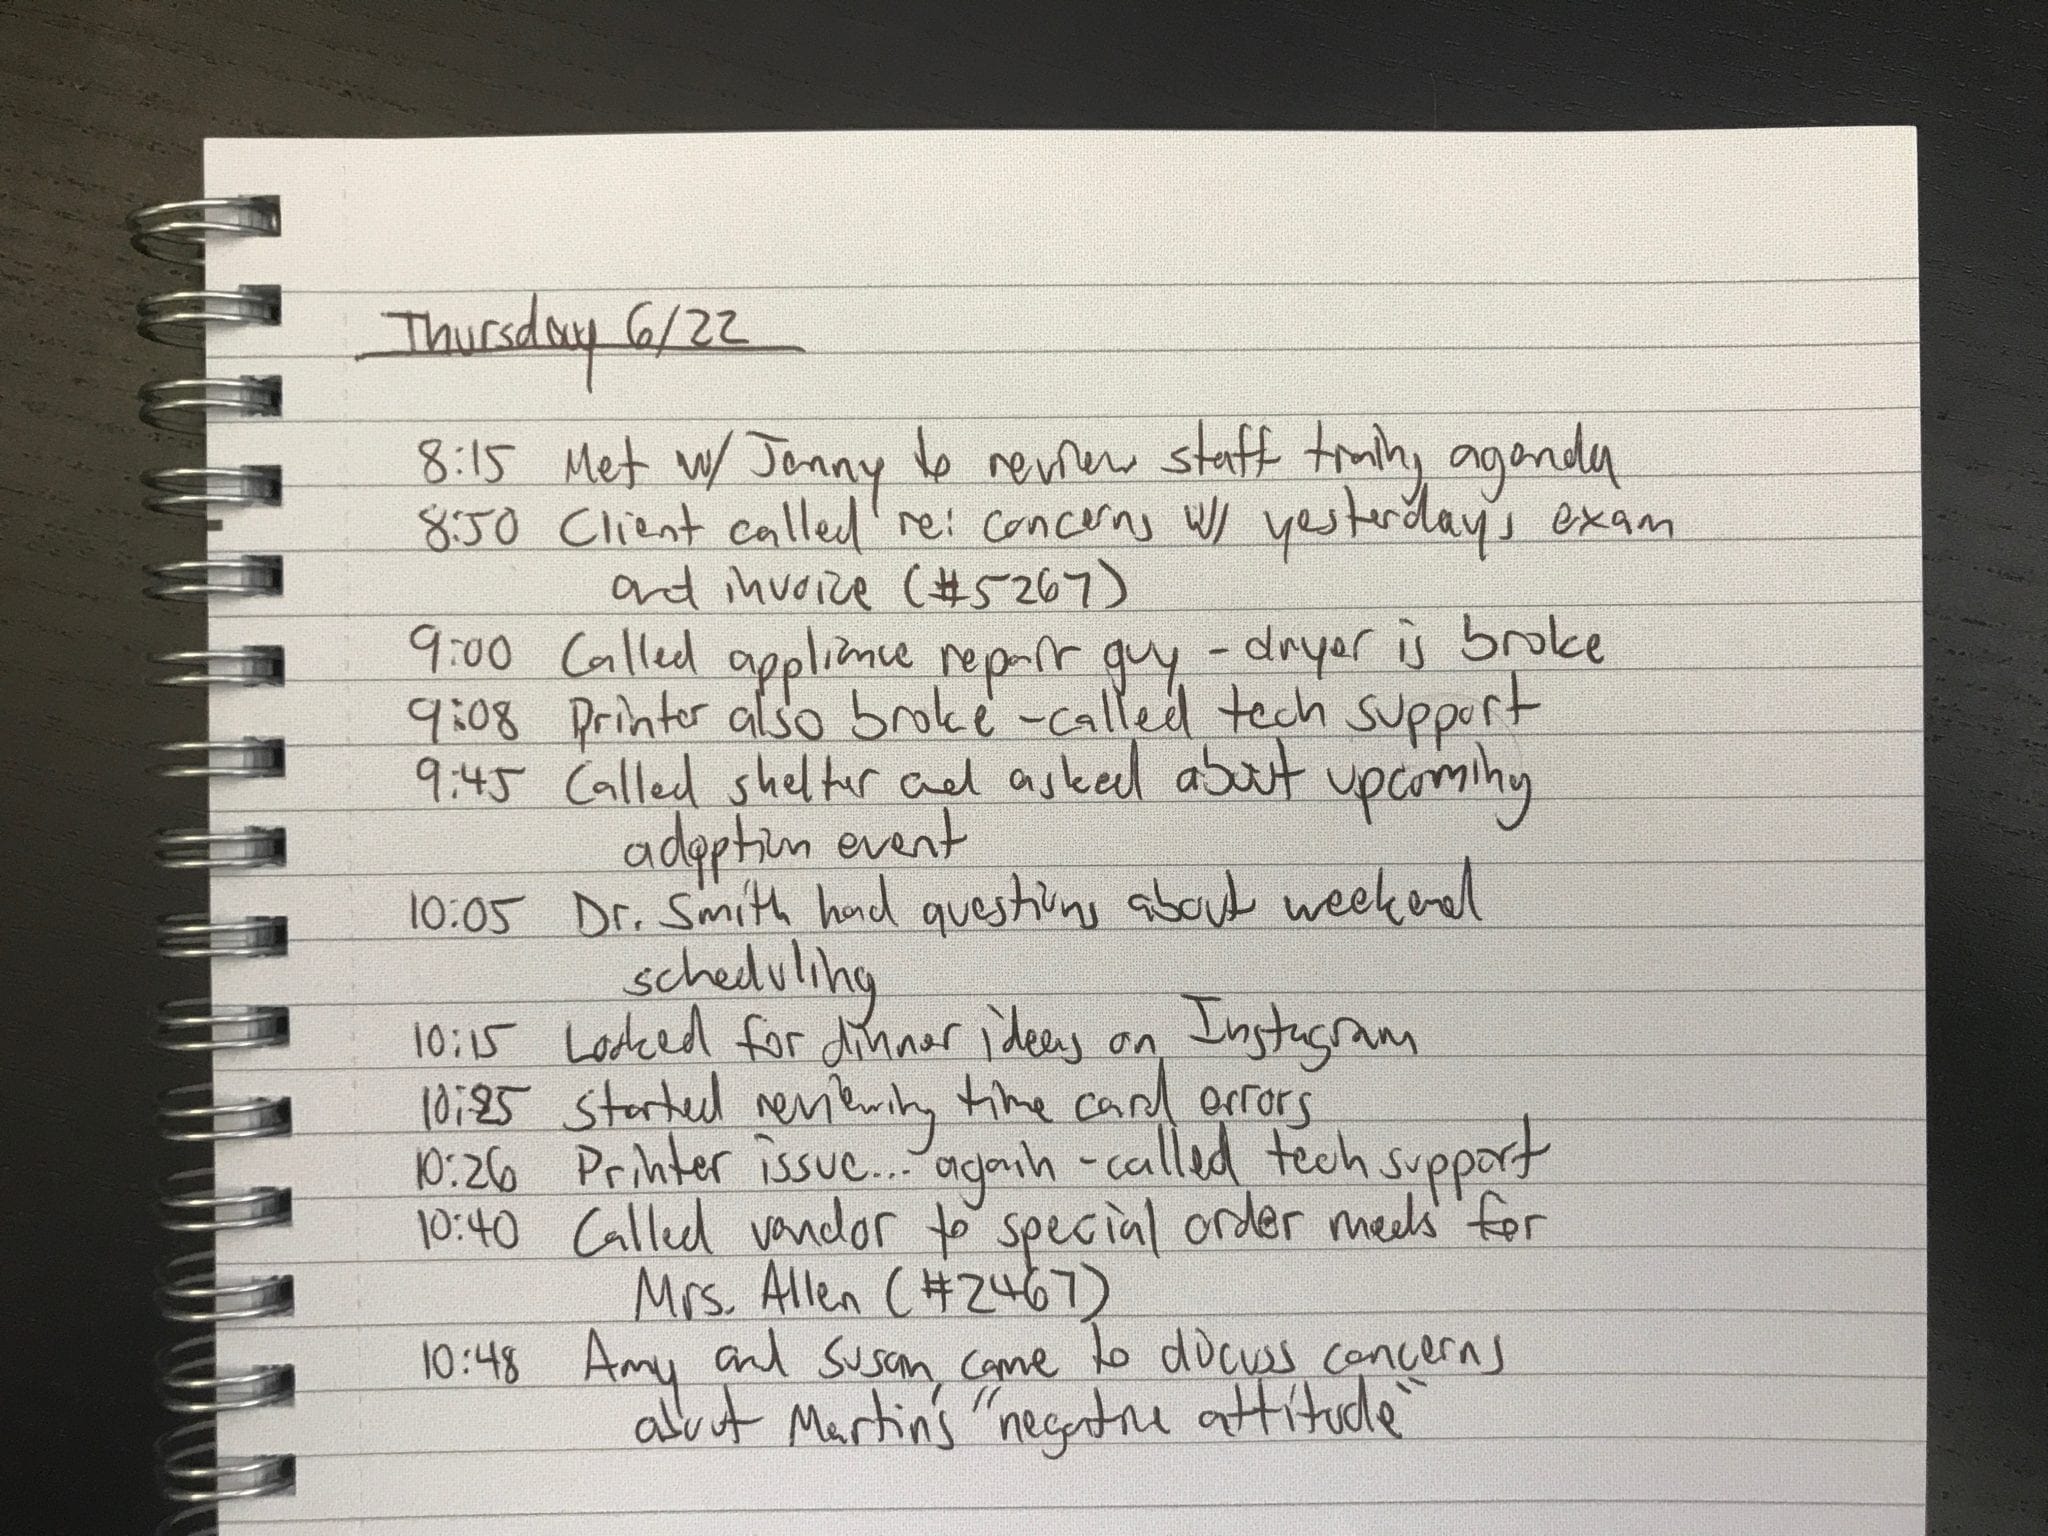 Thursday 6/22
8:15 Met w/ Jenny to review staff training agenda
8:50 Client called re: concerns w/ yesterdays exam
and invoice (#5267)
9:00 Called appliance repair guy - dryer is broke
9:08 Printer also broke - called tech support
9:45 Called shelter and asked about upcoming
adoption event
10:05 Dr. Smith had questions about weekend
scheduling
10:15 Looked for dinner ideas on Instagram
10:25 Started reviewing time card errors
10:26 Printer issue... again - called tech support
10:40 Called vendor to special order meds for
Mrs. Allen (#2467)
10:48 Amy and Susan came to discuss concerns
about Martin's "negative attitude"